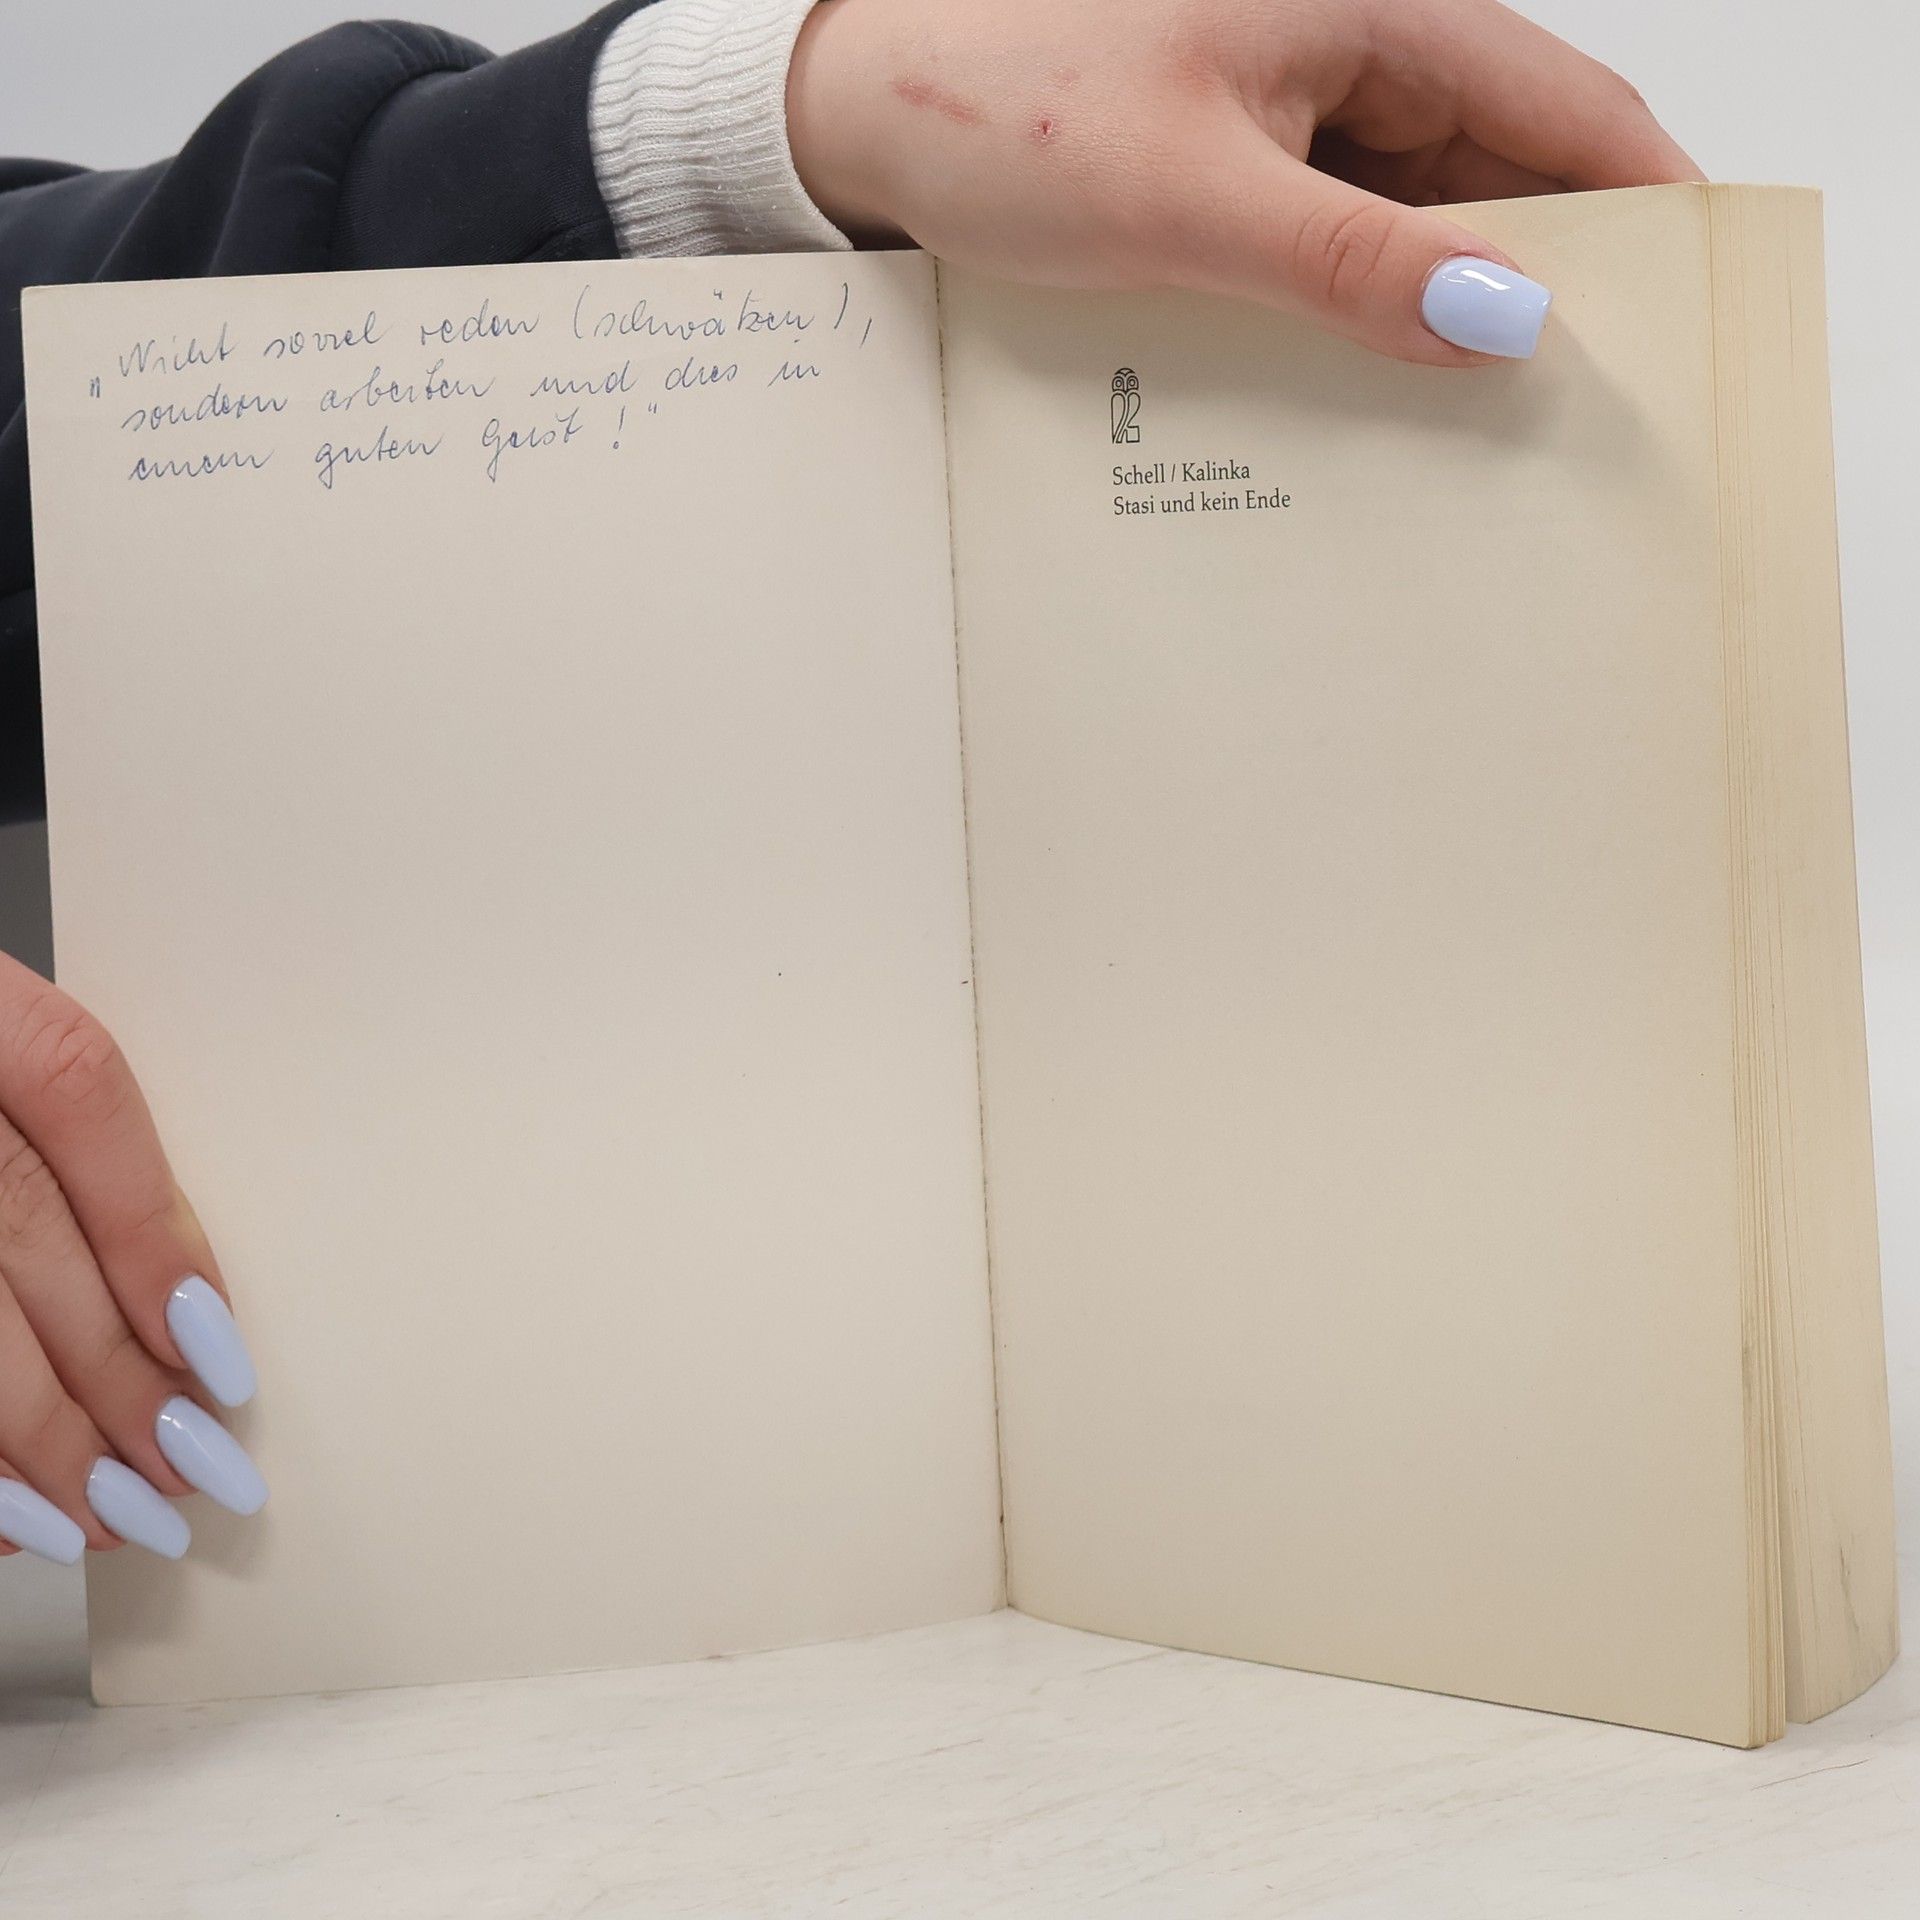 „Nicht soviel reden (schwätzen),
sondern arbeiten und dies in
einem guten Geist!"
Schell / Kalinka
Stasi und kein Ende